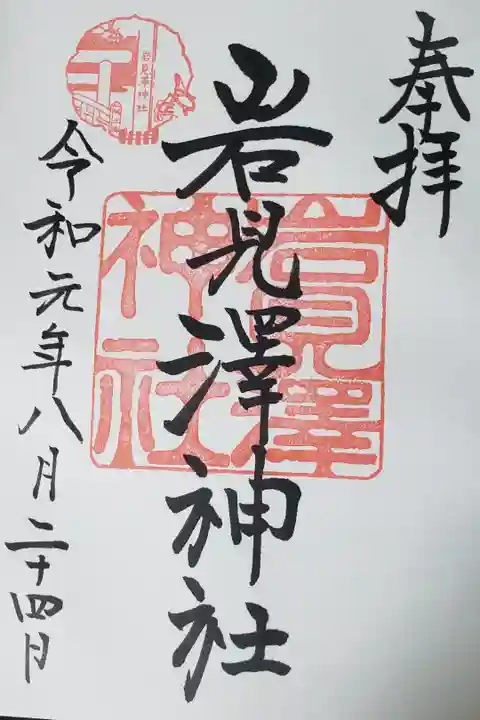 奉拝
岩見澤神社
岩見澤神社
令和元年八月二十四日
岩見澤神社